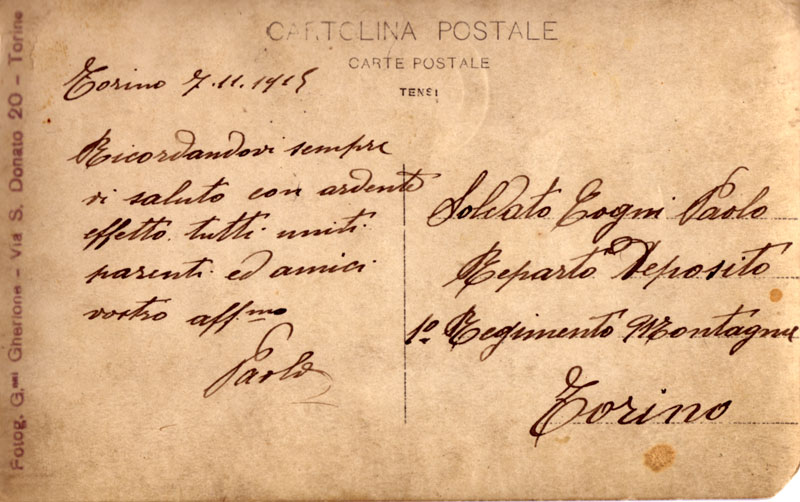 CARTOLINA POSTALE
CARTE POSTALE
TENSI
Torino 7.11.1915
Ricordandovi sempre
vi saluto con ardente
effetto tutti uniti
parenti ed amici
vostro affmo
Paolo
Soldato Eogni Paolo
Reparto Deposito
1º Regimento Montagna
Torino
Fotog. G.mi Gherlone - Via S. Donato 20 - Torino